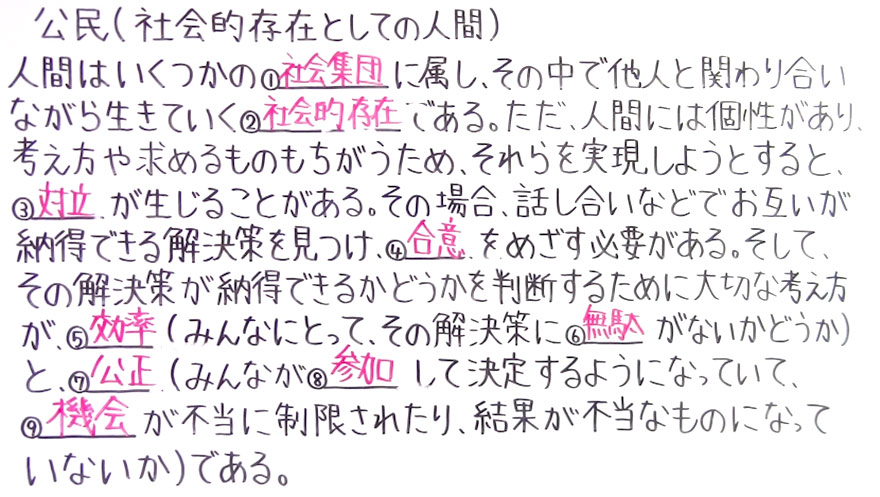 公民(社会的存在としての人間)
人間はいくつかの①社会集団に属し、その中で他人と関わり合い
ながら生きていく②社会的存在である。ただ、人間には個性があり、
考え方や求めるものもちがうため、それらを実現しようとすると、
③対立が生じることがある。その場合、話し合いなどでお互いが
納得できる解決策を見つけ、④合意をめざす必要がある。そして、
その解決策が納得できるかどうかを判断するために大切な考え方
が、⑤効率(みんなにとって、その解決策に⑥無駄がないかどうか)
と、⑦公正(みんなが⑧参加して決定するようになっていて、
⑨機会が不当に制限されたり、結果が不当なものになって
いないか)である。